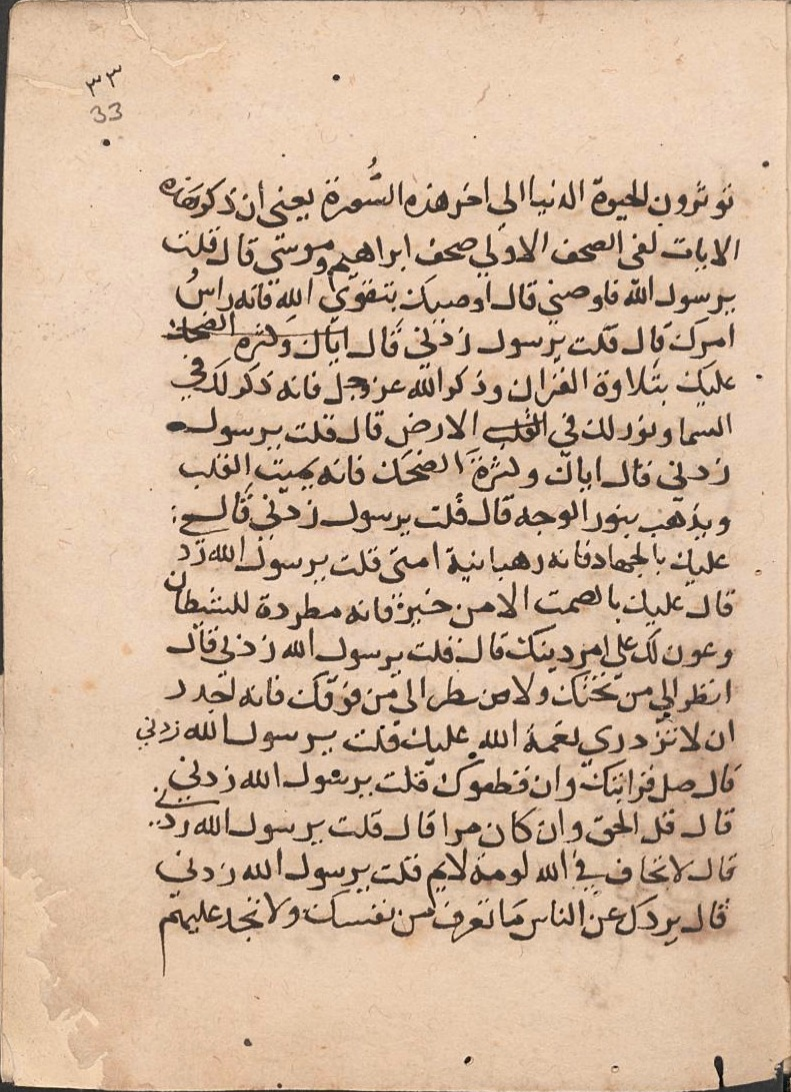 ٣٣
33
توثرون الحيوة الدنيا الى اخر هذه السُّورة يعني ان ذكر هذه
الايات لفي الصحف الاولي صحف ابراهيم وموسي قال قلت
يرسول الله فاوصني قال اوصيك بتقوي الله فانه راسُ
امرك قال قلت يرسول زدني قال اياك وكثرة الضحك
عليك بتلاوة القران وذكر الله عز وجل فانه ذكر لك في
السما ونور لك في القلب الارض قال قلت يرسول
زدني قال اياك وكثرة الضحك فانه يميت القلب
ويذهب بنور الوجه قال قلت يرسول زدني قال
عليك بالجهاد فانه رهبانية امتي قلت يرسول الله زد
قال عليك بالصمت الا من خير فانه مطردة للشيطان
وعون لك علي امر دينك قال قلت يرسول الله زدني قال
انظر الي من تحتك ولا من فوقك فانه اجدر
ان لا تزدري نعمة الله عليك قلت يرسول الله زدني
قال صل قرابتك وان قطعوك قلت يرسول الله زدني
قال قل الحق وان كان مرا قال قلت يرسول الله زدني
قال لا تخاف في الله لومة لايم قلت يرسول الله زدني
قال يردك عن الناس ما تعرف من نفسك ولا تجد عليهم